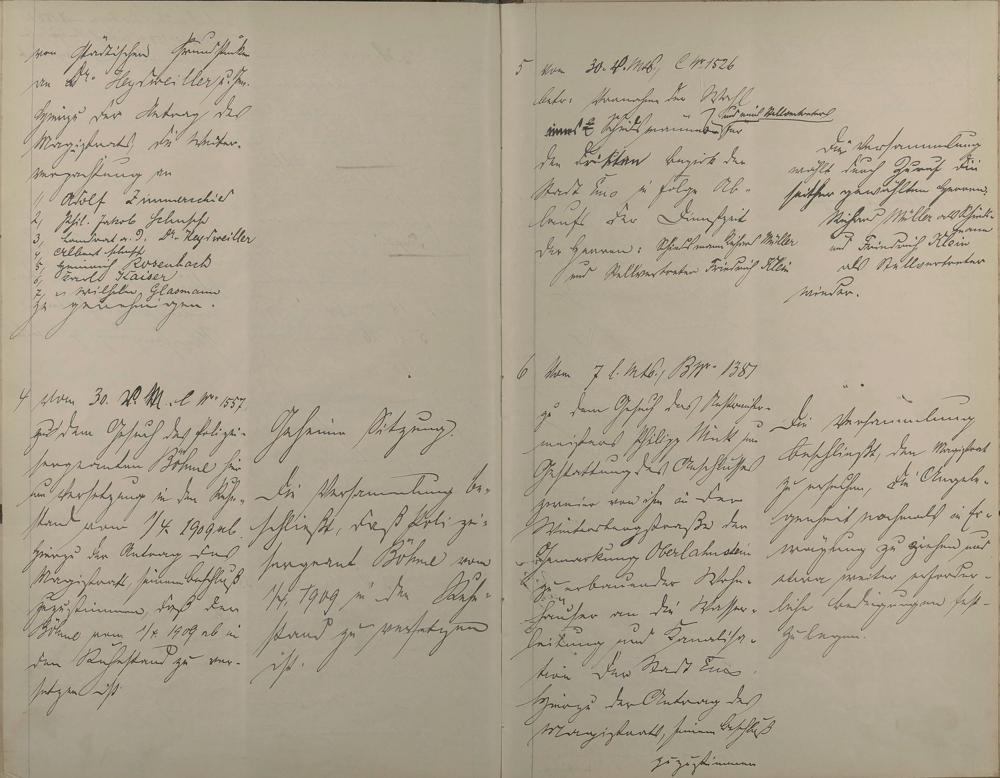 von städtischen Grundstücken
an Dr. Heydweiller u. Gen.
Hierzu der Antrag des
Magistrats die Weiter-
verpachtung an
1, Adolf Zimmerschied
2, Phil. Jakob Schupp
3, Landrat a. D. Dr. Heydweiller
4, Albert
5, Heinrich Rosenbach
6, Karl Kaiser
7, Wilhelm Glasmann
zu genehmigen.
4 Vom 30. v. M. C No. 1557
zu dem Gesuch des Polizei-
sergeanten Böhme hier
um Versetzung in den Ruhe-
stand vom 1/4 1909 ab.
Hierzu der Antrag des
Magistrats, seinem Beschluß
zuzustimmen, daß der
Böhme vom 1/4 1909 ab in
den Ruhestand zu ver-
setzen ist.
Geheime Sitzung.
Die Versammlung be-
schließt, daß Polizei-
sergeant Böhme vom
1/4 1909 in den Ruhe-
stand zu versetzen
ist.
5 Vom 30. v. Mts., C No 1526
betr: Vornahme der Wahl
eines Schiedsmannes und eines Stellvertreters für
den dritten Bezirk der
Stadt Ems in Folge Ab-
laufs der Dienstzeit
der Herren: Schiedsmann Lehrer Müller
und Stellvertreter Friedrich Klein
Die Versammlung
wählt durch Zuruf die
seither gewählten Herren
Müller als Schieds-
mann
und Friedrich Klein
als Stellvertreter
wieder.
6 Vom 7 l. Mts., B No. 1387
zu dem Gesuch des
meisters Philipp um
Gestattung des Anschlusses
zweier von ihm in der
Wintersbergstraße der
Gemarkung Oberlahnstein
zu erbauender Wohn-
häuser an die Wasser-
leitung und Kanalisa-
tion der Stadt Ems.
Hierzu der Antrag des
Magistrats, seinem Beschluß
zuzustimmen
Die Versammlung
beschließt, den Magistrat
zu ersuchen, die Angele-
genheit nochmals in Er-
wägung zu ziehen und
etwa weiter erforder-
liche Bedingungen fest-
zulegen.